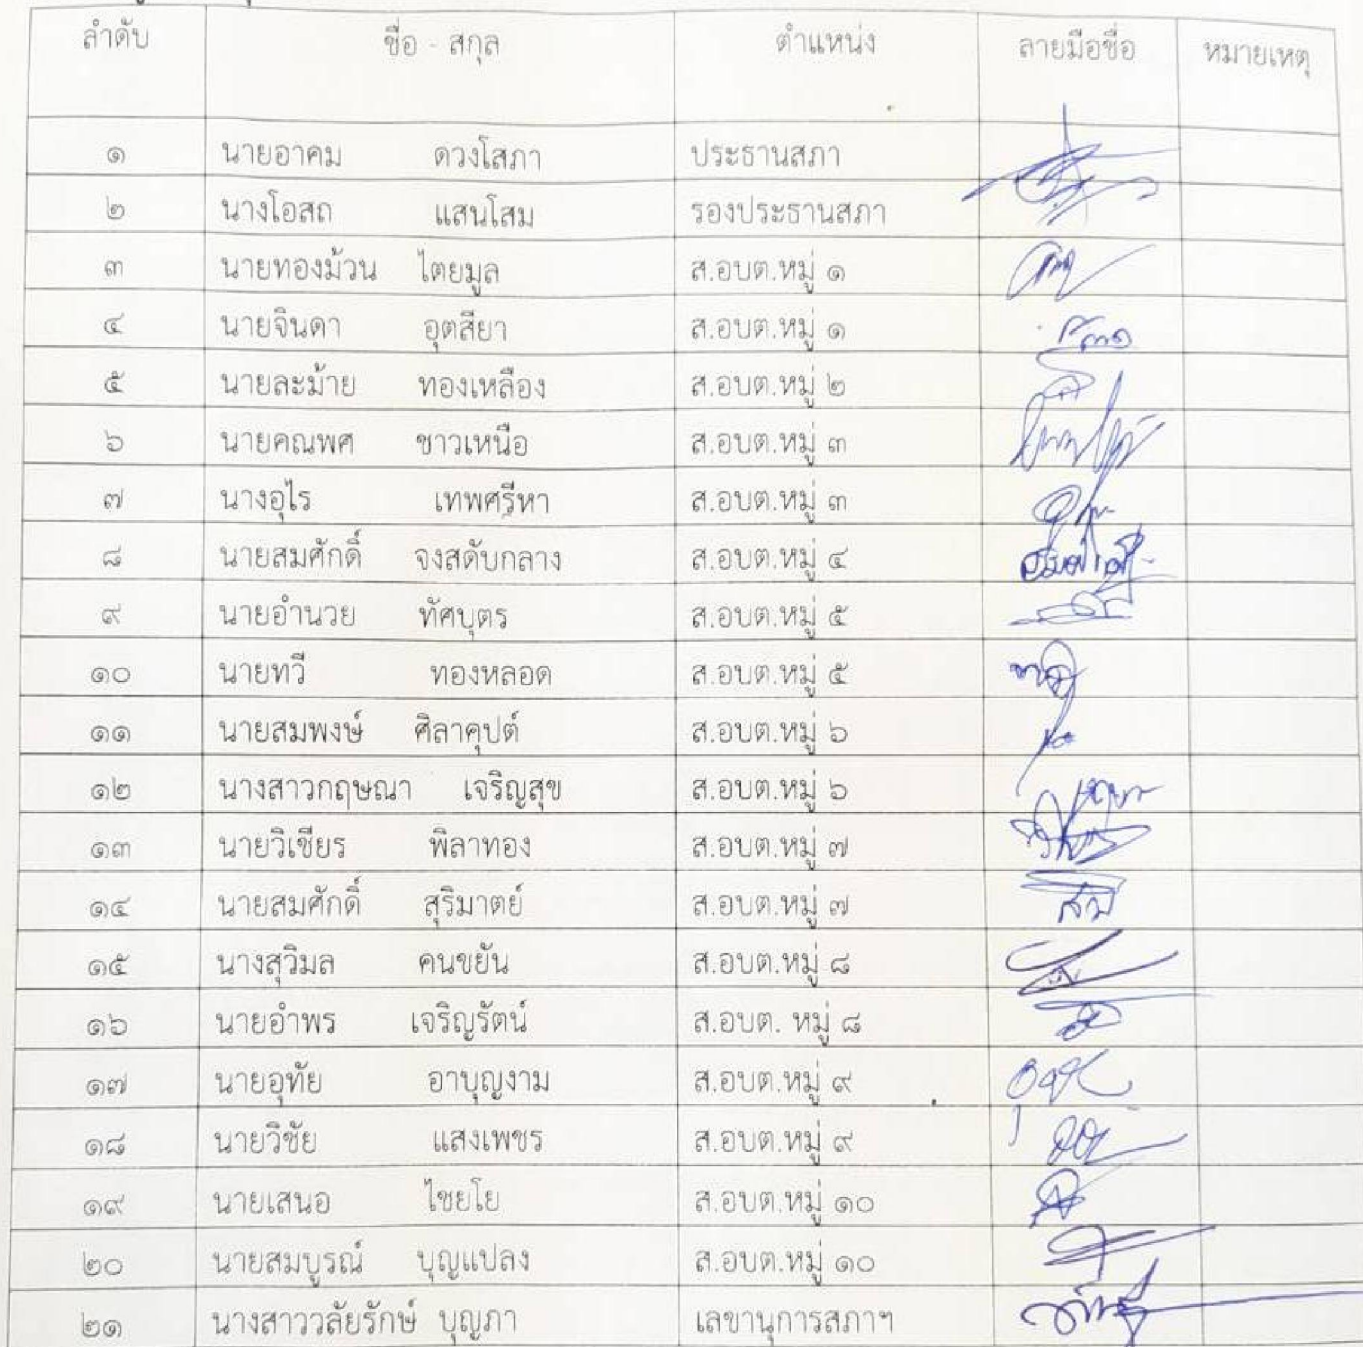 ลำดับ ชื่อ - สกุล ตำแหน่ง ลายมือชื่อ หมายเหตุ
๑ นายอาคม ดวงโสภา ประธานสภา
๒ นางโอสถ แสนโสม รองประธานสภา
๓ นายทองม้วน ไตยมูล ส.อบต.หมู่ ๑
๔ นายจินดา อุตสียา ส.อบต.หมู่ ๑
๕ นายละม้าย ทองเหลือง ส.อบต.หมู่ ๒
๖ นายคณพศ ชาวเหนือ ส.อบต.หมู่ ๓
๗ นางอุไร เทพศรีหา ส.อบต.หมู่ ๓
๘ นายสมศักดิ์ จงสดับกลาง ส.อบต.หมู่ ๔
๙ นายอำนวย ทัศบุตร ส.อบต.หมู่ ๕
๑๐ นายทวี ทองหลอด ส.อบต.หมู่ ๕
๑๑ นายสมพงษ์ ศิลาคุปต์ ส.อบต.หมู่ ๖
๑๒ นางสาวกฤษณา เจริญสุข ส.อบต.หมู่ ๖
๑๓ นายวิเชียร พิลาทอง ส.อบต.หมู่ ๗
๑๔ นายสมศักดิ์ สุริมาตย์ ส.อบต.หมู่ ๗
๑๕ นางสุวิมล คนขยัน ส.อบต.หมู่ ๘
๑๖ นายอำพร เจริญรัตน์ ส.อบต. หมู่ ๘
๑๗ นายอุทัย อาบุญงาม ส.อบต.หมู่ ๙
๑๘ นายวิชัย แสงเพชร ส.อบต.หมู่ ๙
๑๙ นายเสนอ ไชยโย ส.อบต.หมู่ ๑๐
๒๐ นายสมบูรณ์ บุญแปลง ส.อบต.หมู่ ๑๐
๒๑ นางสาววลัยรักษ์ บุญภา เลขานุการสภาฯ